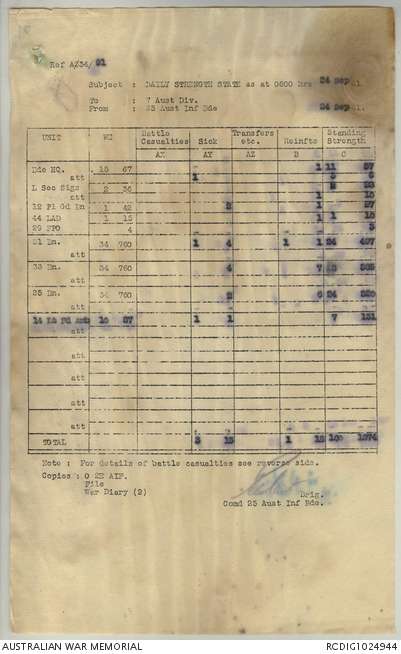 Ref AZ34/91
Subject : DAILY STRENGTH STATE as at 0600 hrs 24 Sep 41.
To : 7 Aust Div.
From : 25 Aust Inf Bde 24 Sep 41.
UNIT WE Battle Casualties Sick Transfers etc. Reinfts Standing Strength
AX AY AZ B C
Bde HQ. 15 67 1 11 57
att 1
L Sec Sigs 2 36
att 1 15
12 Pl Gd Bn 1 42 2 1
44 LAD 1 15 1 15
att
29 FPO 4
31 Bn. 34 760 1 4 1 1 24 497
att
33 Bn. 34 760 4 7
att
25 Bn. 34 760 2 6 24
att
14 Lt Fd Amb 10 87 1 1 7 131
att
att
att
att
att
TOTAL 3 13 1
Note : For details of battle casualties see reverse side.
Copies : O 2E AIF.
File
War Diary (2)
Brig.
Comd 25 Aust Inf Bde.
AUSTRALIAN WAR MEMORIAL RCDIG1024944